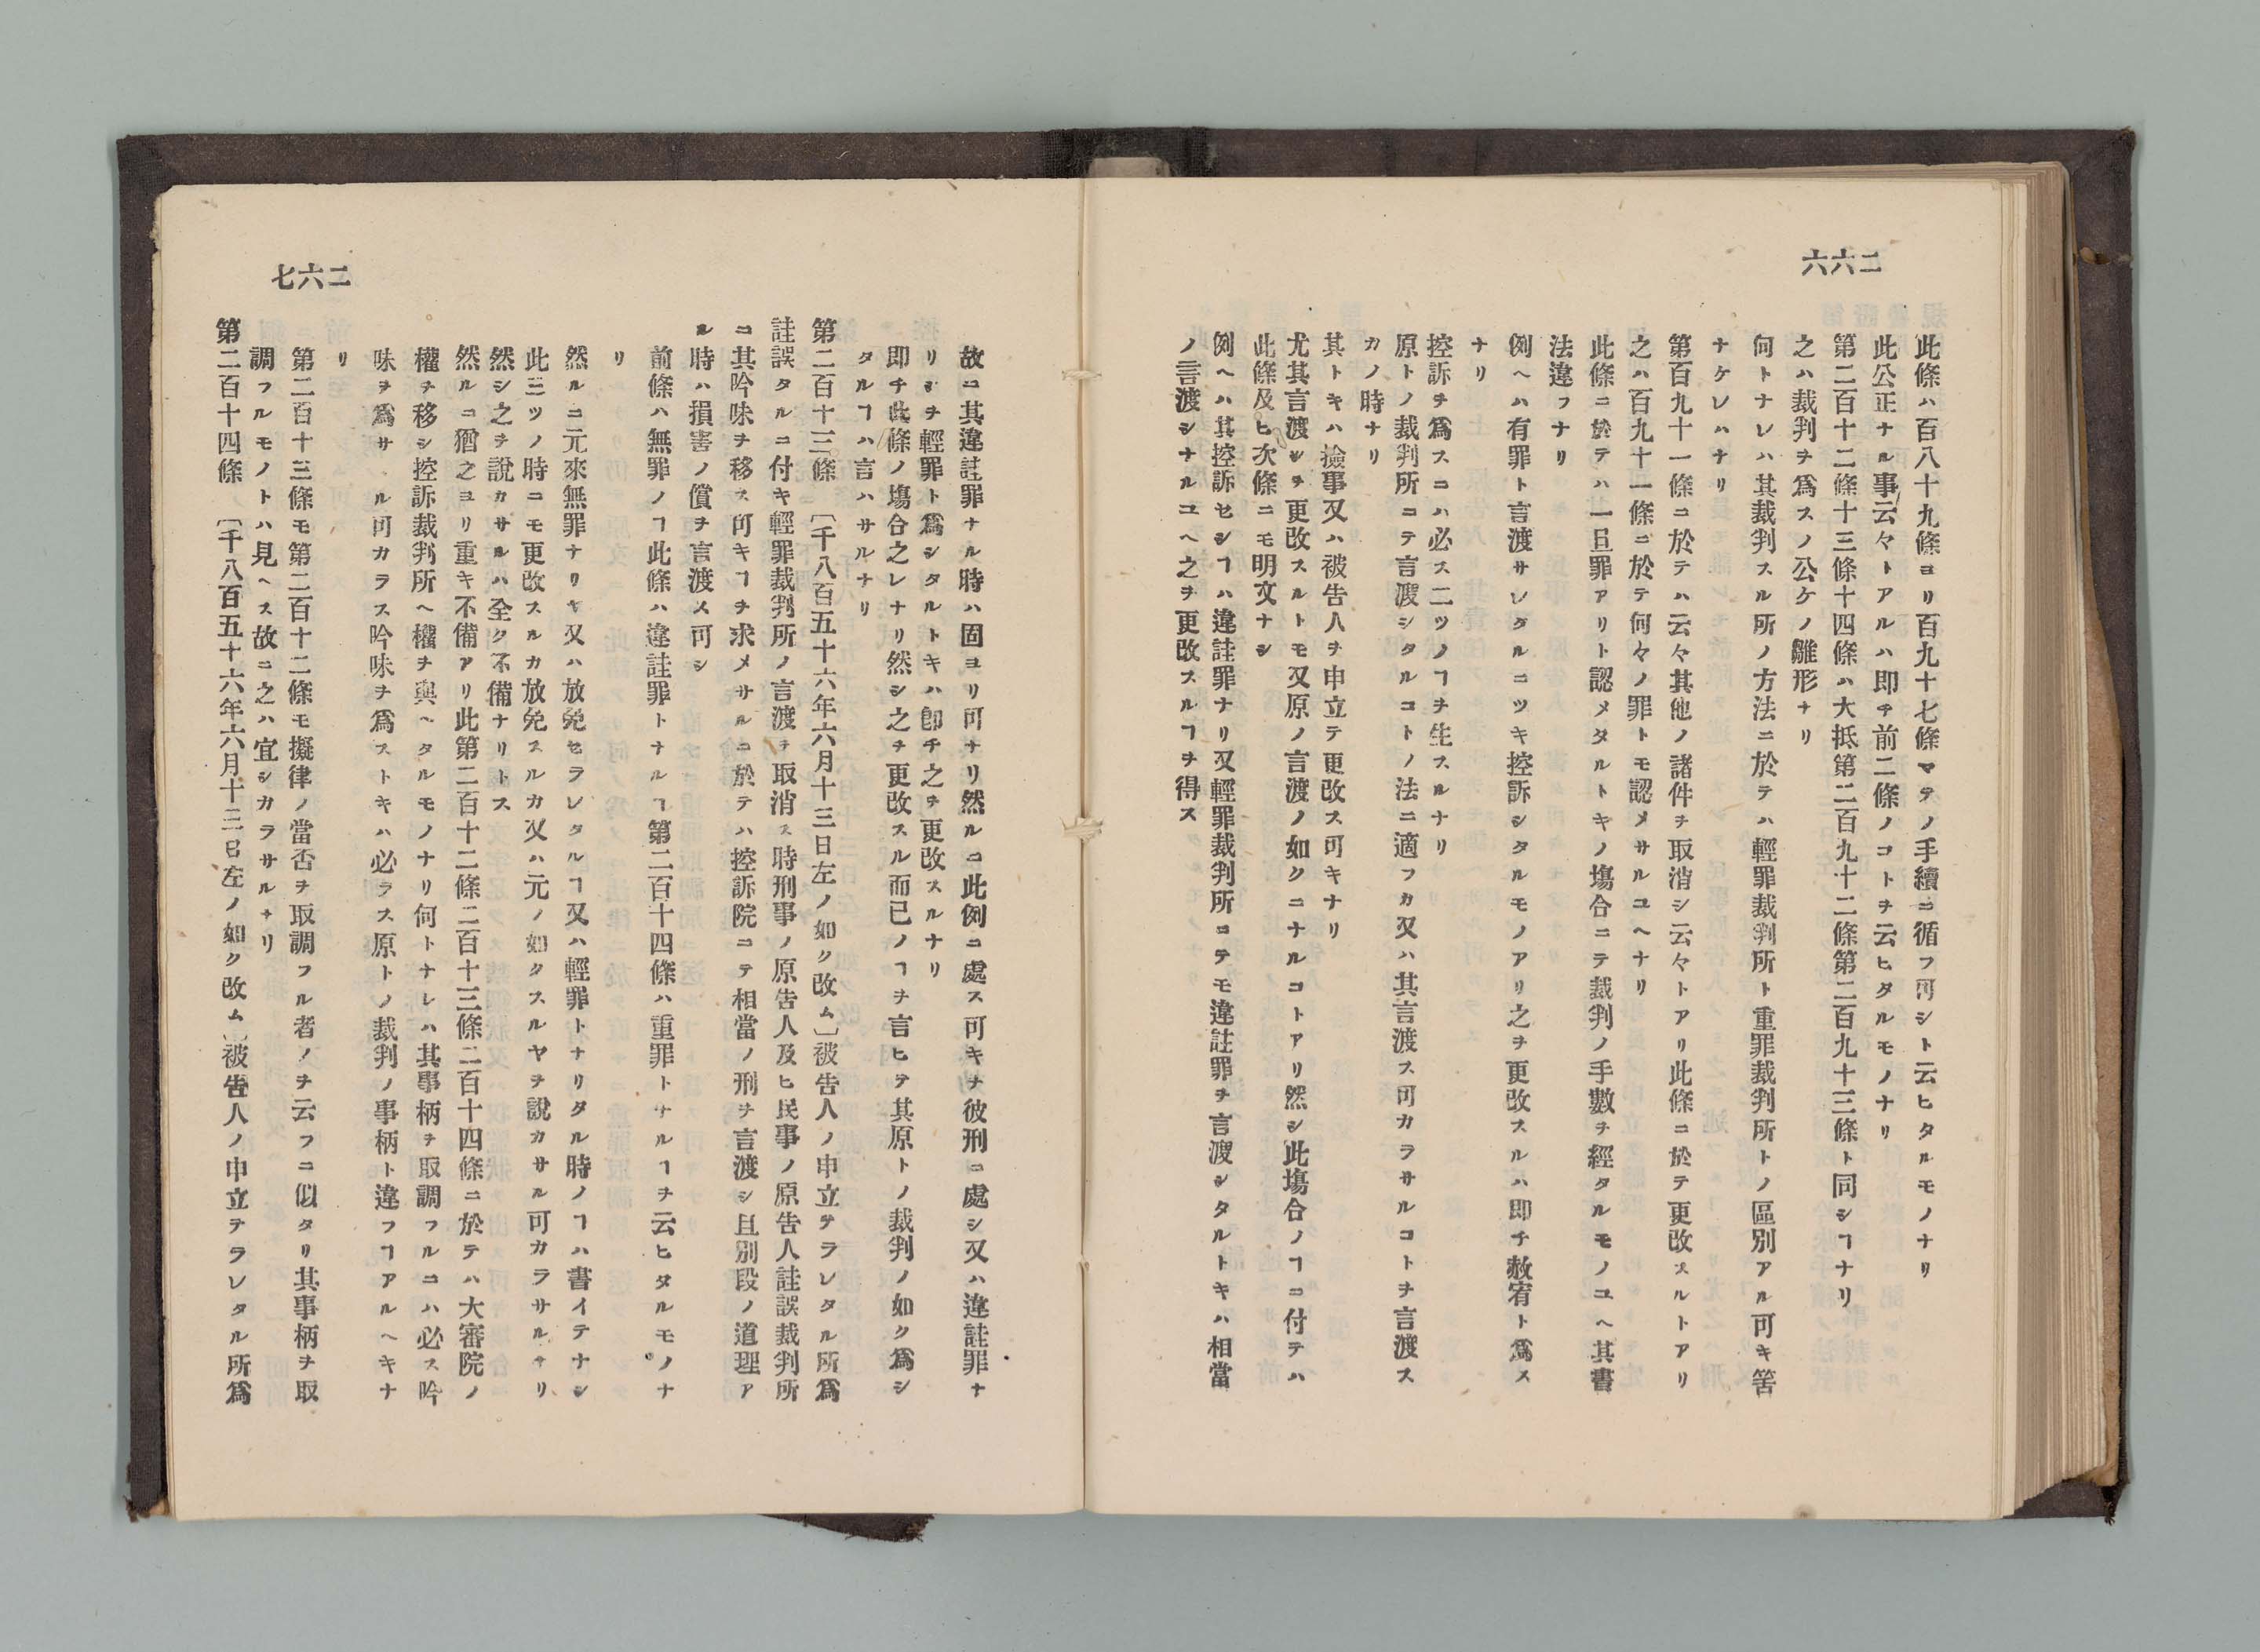 二六六
此條ハ百八十九條ヨリ百九十七條マテノ手續ニ循フ可シト云ヒタルモノナリ
此公正ナル事云々トアルハ即チ前二條ノコトヲ云ヒタルモノナリ
第二百十二條十三條十四條ハ大抵第二百九十二條第二百九十三條ト同シヿナリ
之ハ裁判ヲ爲スノ公ケノ雛形ナリ
何トナレハ其裁判スル所ノ方法ニ於テハ輕罪裁判所ト重罪裁判所トノ區別アル可キ筈
ナケレハナリ
第百九十一條ニ於テハ云々其他ノ諸件ヲ取消シ云々トアリ此條ニ於テ更改スルトアリ
之ハ百九十一條ニ於テ何々ノ罪トモ認メサルユヘナリ
此條ニ於テハ一旦罪アリト認メタルトキノ塲合ニテ裁判ノ手數ヲ經タルモノユヘ其書
法違フナリ
例ヘハ有罪ト言渡サレタルニツキ控訴シタルモノアリ之ヲ更改スルハ即チ赦宥ト爲ス
ナリ
控訴ヲ爲スニハ必ス二ツノヿヲ生スルナリ
原トノ裁判所ニテ言渡シタルコトノ法ニ適フカ又ハ其言渡ス可カラサルコトヲ言渡ス
カノ時ナリ
其トキハ撿事又ハ被告人ヲ申立テ更改ス可キナリ
尤其言渡シヲ更改スルトモ又原ノ言渡ノ如クニナルコトアリ然シ此塲合ノヿニ付テハ
此條及ヒ次條ニモ明文ナシ
例ヘハ其控訴セシヿハ違註罪ナリ又輕罪裁判所ニテモ違註罪ヲ言渡シタルトキハ相當
ノ言渡シナルユヘ之ヲ更改スルヿヲ得ス
二六七
故ニ其違註罪ナル時ハ固ヨリ可ナリ然ルニ此例ニ處ス可キヲ彼刑ニ處シ又ハ違註罪ナ
リシヲ輕罪ト爲シタルトキハ即チ之ヲ更改スルナリ
即チ此條ノ塲合之レナリ然シ之ヲ更改スル而已ノヿヲ言ヒテ其原トノ裁判ノ如ク爲シ
タルヿハ言ハサルナリ
第二百十三條　〔千八百五十六年六月十三日左ノ如ク改ム〕被告人ノ申立テラレタル所爲
註誤タルニ付キ輕罪裁判所ノ言渡ヲ取消ス時刑事ノ原告人及ヒ民事ノ原告人註誤裁判所
ニ其吟味ヲ移ス可キヿヲ求メサルニ於テハ控訴院ニテ相當ノ刑ヲ言渡シ且別段ノ道理ア
ル時ハ損害ノ償ヲ言渡ス可シ
前條ハ無罪ノヿ此條ハ違註罪トナルヿ第二百十四條ハ重罪トナルヿヲ云ヒタルモノナ
リ
然ルニ元來無罪ナリキ又ハ放免セラレタルヿ又ハ輕罪トナリタル時ノヿハ書イテナシ
此三ツノ時ニモ更改スルカ放免スルカ又ハ元ノ如クスルヤヲ說カサル可カラサルナリ
然シ之ヲ說カサルハ全ク不備ナリトス
然ルニ猶之ヨリ重キ不備アリ此第二百十二條二百十三條二百十四條ニ於テハ大審院ノ
權ヲ移シ控訴裁判所ヘ權ヲ與ヘタルモノナリ何トナレハ其事柄ヲ取調フルニハ必ス吟
味ヲ爲サヽル可カラス吟味ヲ爲ストキハ必ラス原トノ裁判ノ事柄ト違フヿアルヘキナ
リ
第二百十三條モ第二百十二條モ擬律ノ當否ヲ取調フル者ノヲ云フニ似タリ其事柄ヲ取
調フルモノトハ見ヘス故ニ之ハ宜シカラサルナリ
第二百十四條　〔千八百五十六年六月十三日左ノ如ク改ム〕被告人ノ申立テラレタル所爲